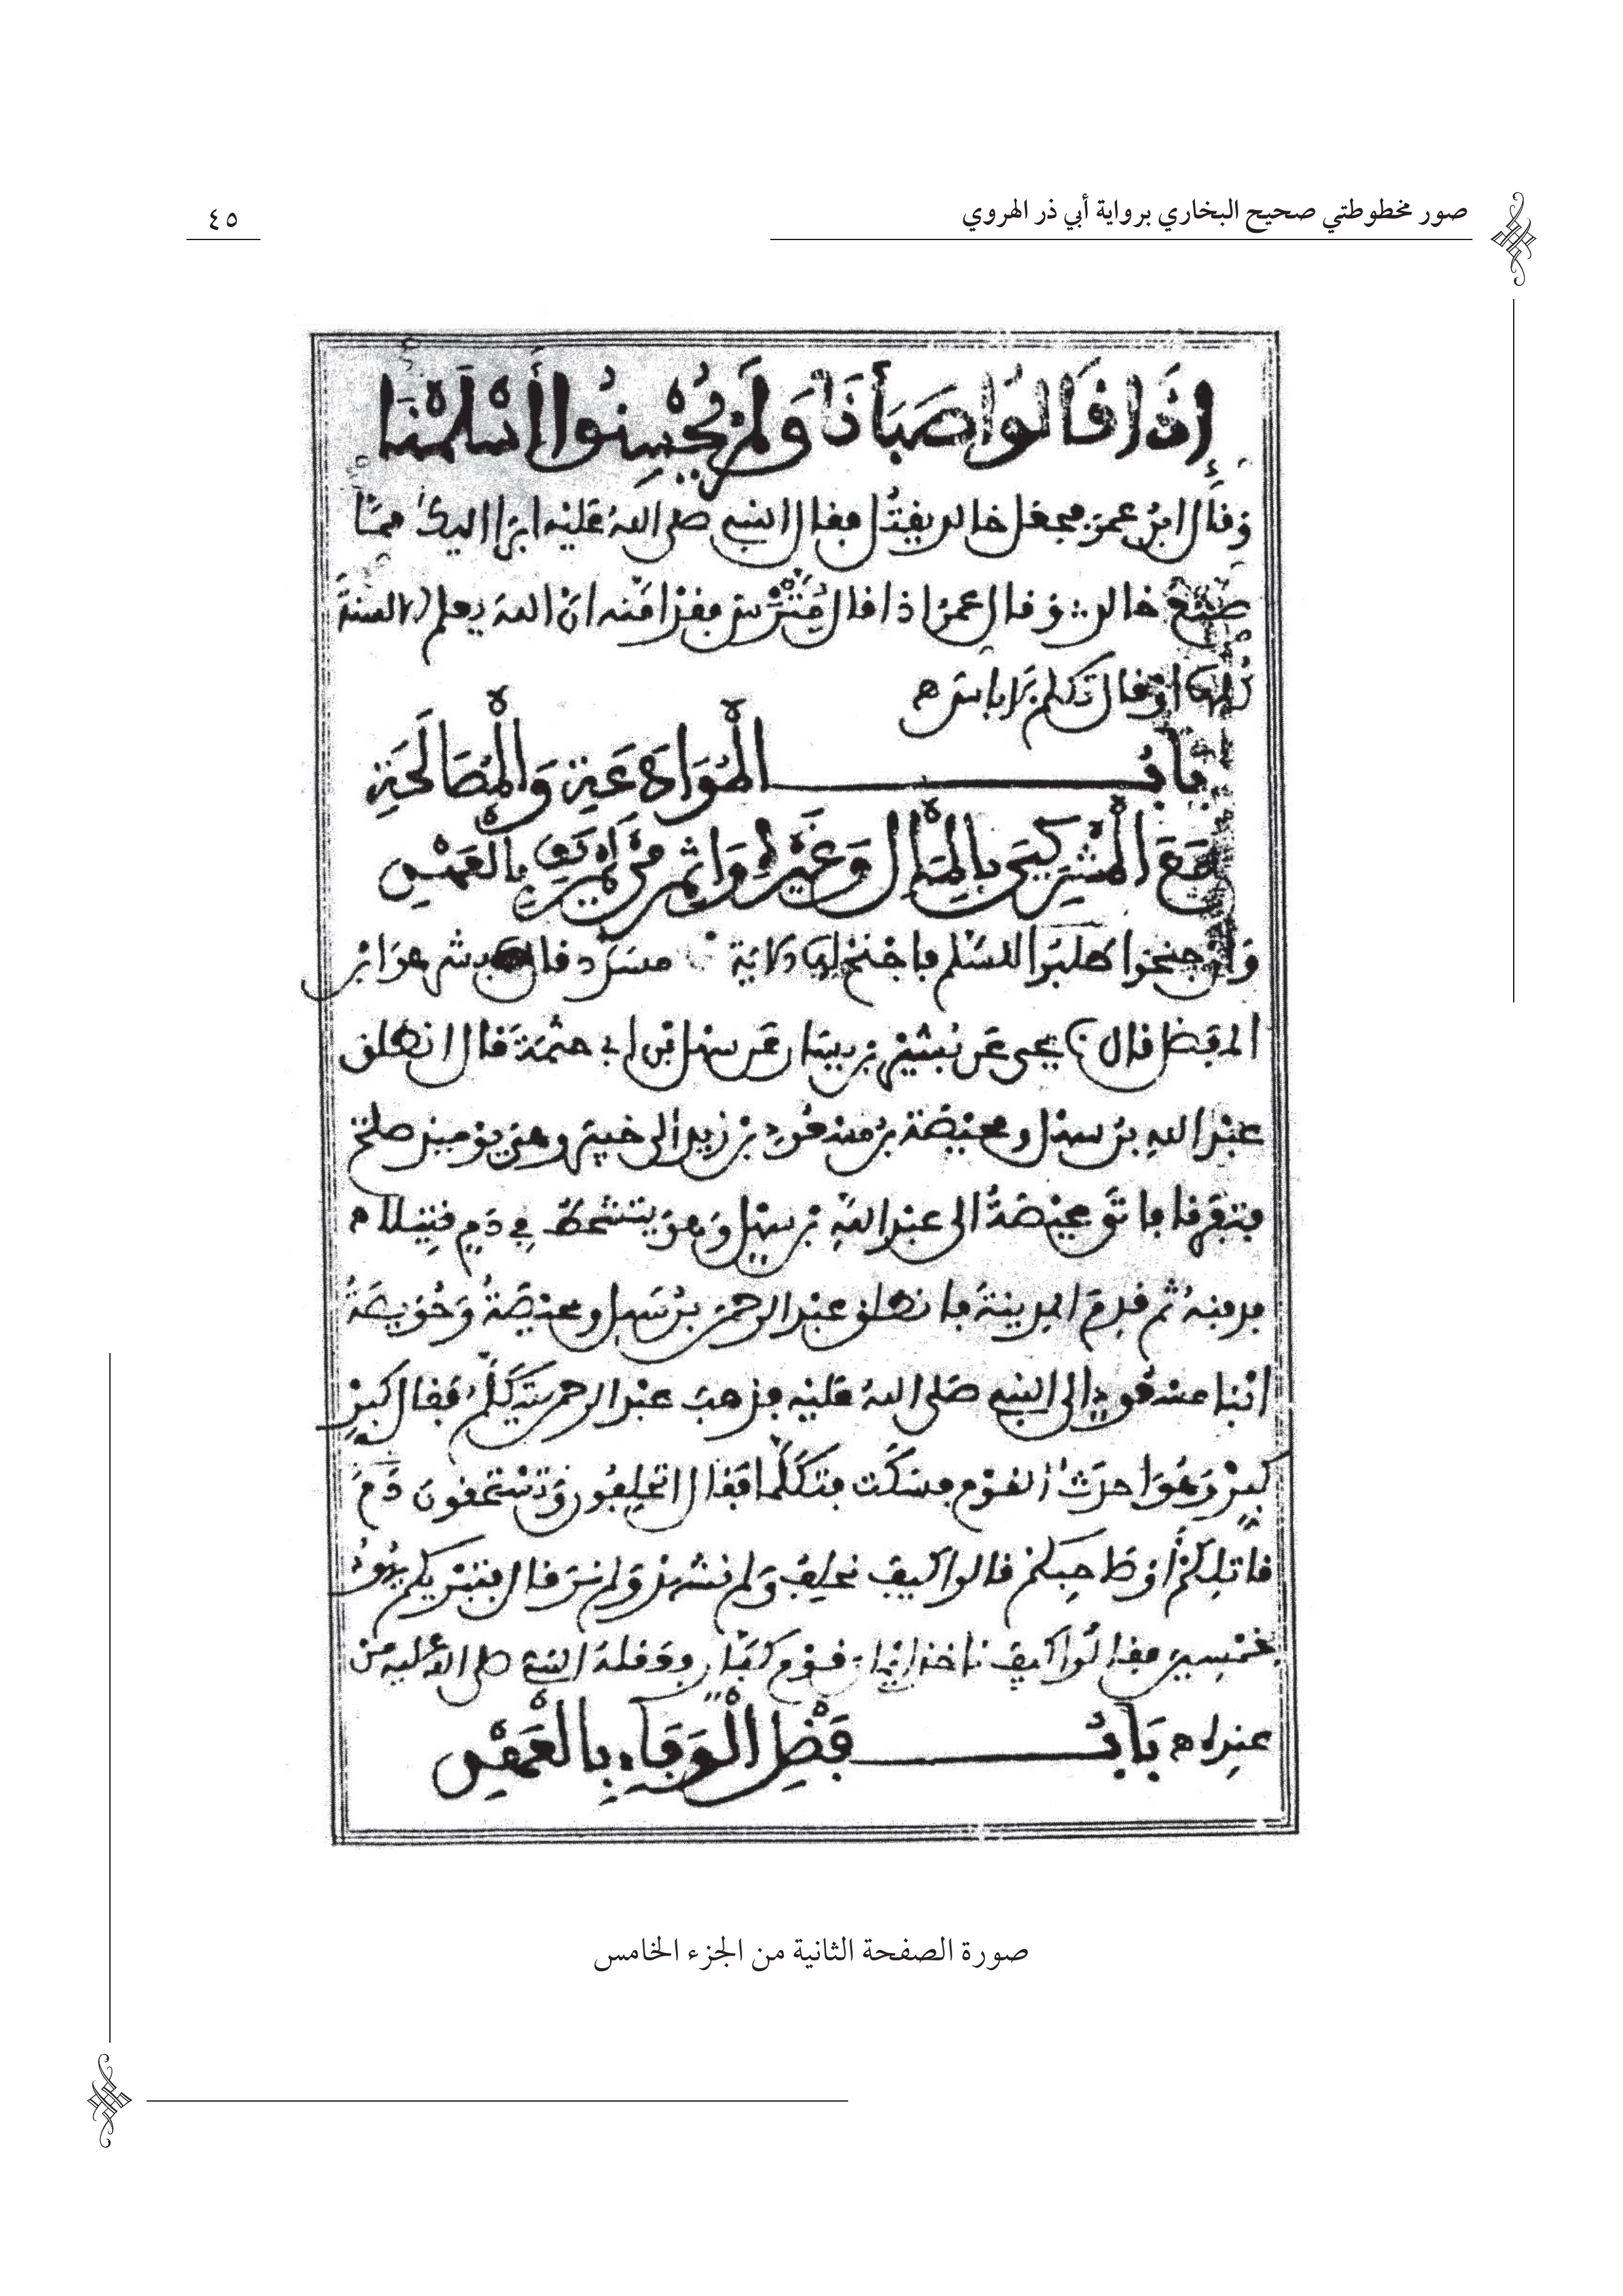 صور مخطوطتي صحيح البخاري برواية أبي ذر الهروي
٤٥
إِذَا قَالُوا صَبَأْنَا وَلَمْ يُحْسِنُوا أَسْلَمْنَا
وقال ابن عمر فجعل خالد يقتل فقال النبي صلى الله عليه ابرا اليك مما
صنع خالد وقال عمر اذا قال مترس فقد امنه ان الله يعلم الالسنة
كلها او قال تكلم لا باس
باب الْمُوَادَعَةِ وَالْمُصَالَحَةِ
مَعَ الْمُشْرِكِينَ بِالْمَالِ وَغَيْرِهِ وَإِثْمِ مَنْ لَمْ يَفِ بِالْعَهْدِ
وان جنحوا طلبوا السلم فاجنح لها الاية مسدد قال بشر هو ابن
المفضل قال يحيى عن بشير بن يسار عن سهل بن ابي حثمة قال انطلق
عبد الله بن سهل ومحيصة بن مسعود بن زيد الى خيبر وهي يومئذ صلح
فتفرقا فاتى محيصة الى عبد الله بن سهل وهو يتشحط في دم قتيلا
فدفنه ثم قدم المدينة فانطلق عبد الرحمن بن سهل ومحيصة وحويصة
ابنا مسعود الى النبي صلى الله عليه فذهب عبد الرحمن يتكلم فقال كبر
كبر وهو احدث القوم فسكت فتكلما فقال اتحلفون وتستحقون دم
قاتلكم او صاحبكم قالوا كيف نحلف ولم نشهد ولم نر قال فتبريكم يهود
بخمسين فقالوا كيف ناخذ ايمان قوم كفار فعقله النبي صلى الله عليه من
عنده بَابُ فَضْلِ الْوَفَاءِ بِالْعَهْدِ
صورة الصفحة الثانية من الجزء الخامس